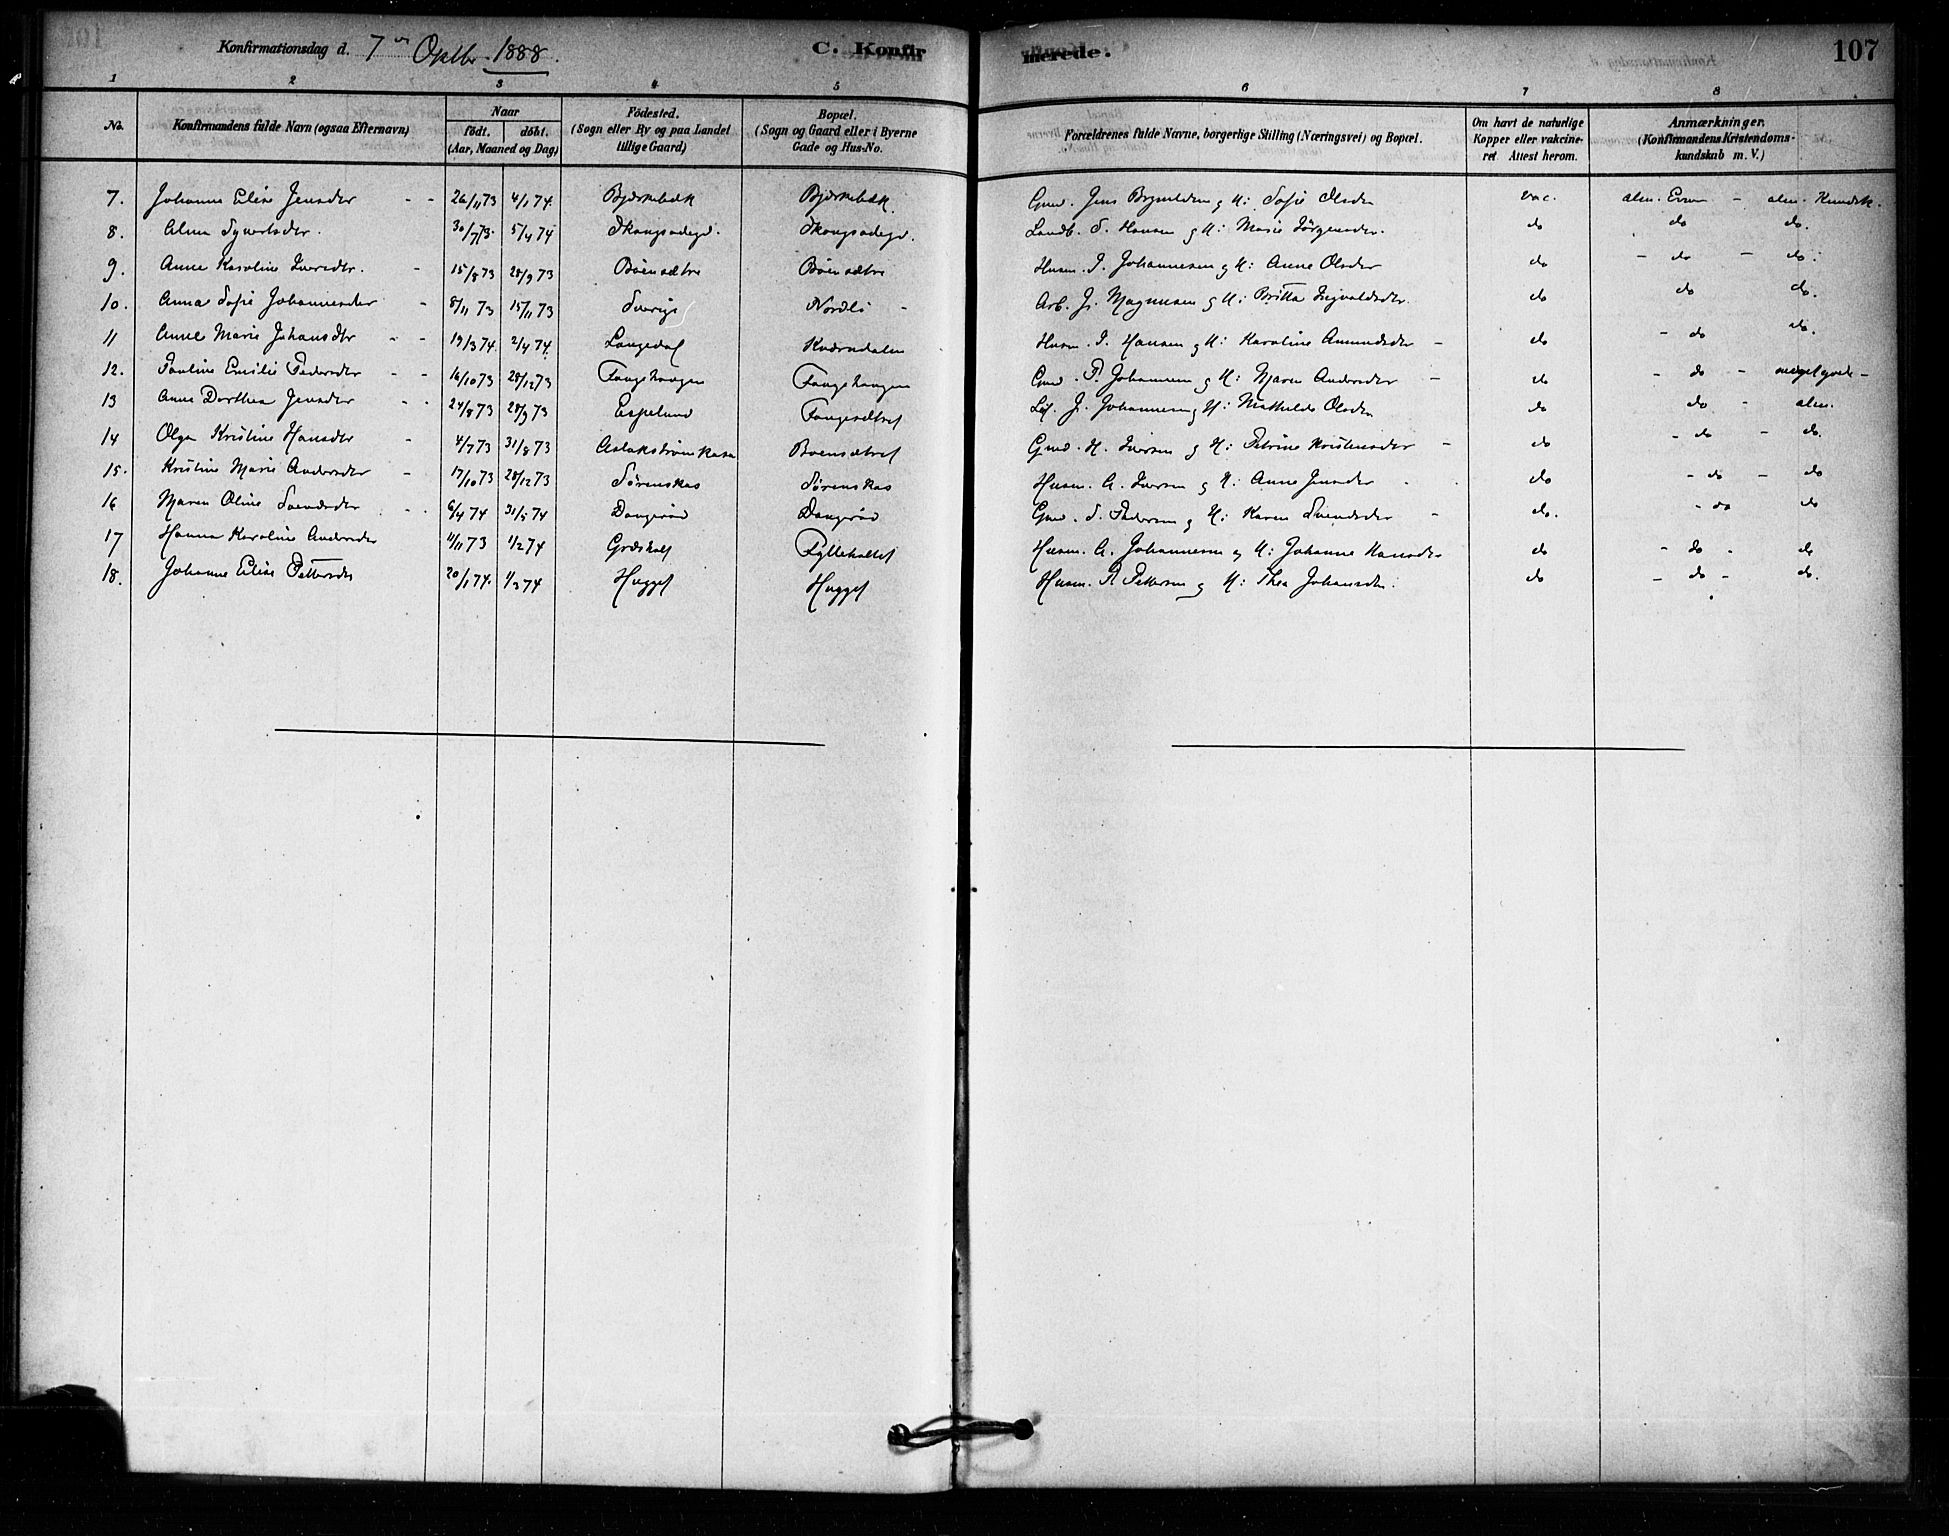 Konfirmationsdag d. 7de Oktbr. 1888.
C. Konfirmerede.
107
1 2 3 4 5 6 7 8
No. Konfirmandens fulde Navn (ogsaa Efternavn) Naar født. døbt. (Aar, Maaned og Dag) Födested. (Sogn eller By og paa Landet tillige Gaard) Bopæl. (Sogn og Gaard eller i Byerne Gade og Hus-No. Forældrenes fulde Navne, borgerlige Stilling (Næringsvei) og Bopæl. Om havt de naturlige Kopper eller vakcineret. Attest herom. Anmærkninger. (Konfirmandens Kristendomskundskab m. V.)
7. Johanne Elise Jensdtr - - 26/11 73 4/1 74. Bjørkebæk Bjørkebæk. Gmd. Jens Brynildsen og H: Sofie Olsdtr vac. alm. Evner - alm. Kundsk.
8. Alma Syvertsdtr. 30/7 73. 5/4 74 Skaugsødegd. Skaugsødegd. Landb. S. Hansen og H: Marie Jørgensdtr. do do do.
9. Anne Karoline Iversdtr. - 15/8 73 28/9 73 Böensætre Böensætre Husm. I. Johannesen og H: Anne Olsdtr do - do - do.
10. Anna Sofie Johannesdtr - 8/11 73 15/11 73 Sverige Nordli - Arb. J. Magnusen og H: Britta Ingvaldsdtr. do do do.
11 Anne Marie Johansdtr - - 19/3 74. 2/4 74. Langedal Kværndalen Husm. J. Hansen og H: Karoline Amundsdtr - do - do do.
12. Pauline Emilie Pedersdtr - - 16/10 73 28/12 73 Faugshaugen Faugshaugen Gmd. P. Johannesen og H: Maren Andersdtr - do - do - meget gode -
13 Anne Dorthea Jensdtr - - 24/8 73 28/9 73 Espelund Faugesætret Lej. J. Johannesen og H: Mathilde Olsdtr do do - alm.
14 Olga Kristine Hansdtr - 4/7 73 31/8 73 Böensætret Gmd. H. Iversen og H: Petrine Kristensdtr - do - do - do.
15. Kristine Marie Andersdtr - 17/10 73 28/12 73 Sörenskas Sörenskas Husm. A. Iversen og H: Anne Jensdtr do - do - do
16 Maren Oline Svendsdtr - - 6/4 74 31/5 74 Daugerød Daugerød Gmd. S. Pedersen og H: Karen Svendsdtr - do. - do do
17 Hanna Karoline Andersdtr 11/11 73 1/2 74 Fyllehullet Husm. A. Johannesen og H: Johanne Hansdtr do - do - do
18. Johanne Elise Pettersdtr 20/1 74. 1/3 74 Hugget Hugget Husm. A Pettersen og H: Thea Johansdtr. do - do - do.